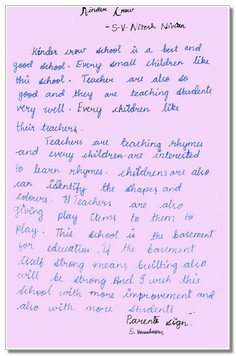 Kinder Crow
- S.V. Nitesh Nivaan
Kinder crow school is a best and
good school. Every small children like
this school. Teacher are also so
good and they are teaching students
very well. Every children like
their teachers.
Teachers are teaching rhymes
and every children are interested
to learn rhymes. childrens are also
can identify the shapes and
colours. Teachers are also
giving play items to them to
play. This school is the basement
for education, if the basement
itself strong means building also
will be strong. And I wish this
school with more improvement and
also with more students
Parents sign.